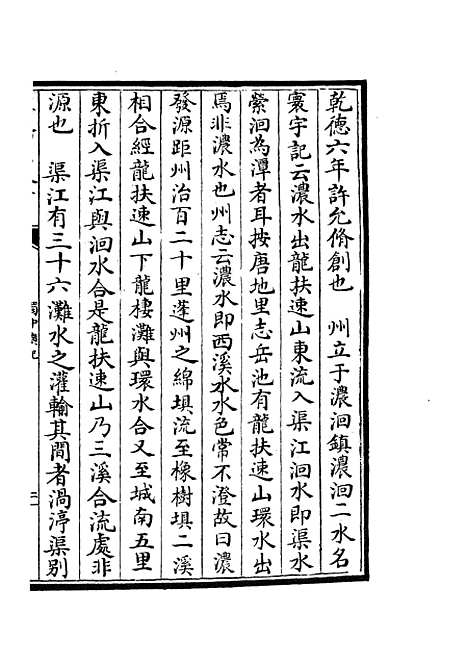 乾德六年許允脩創也　州立于濃洄鎮濃洄二水名
寰宇記云濃水出龍扶速山東流入渠江洄水即渠水
縈洄為潭者耳按唐地里志岳池有龍扶速山環水出
焉非濃水也州志云濃水即西溪水水色常不澄故曰濃
發源距州治百二十里蓬州之綿塤流至橡樹塤二溪
相合經龍扶速山下龍棲灘與環水合又至城南五里
東折入渠江與洄水合是龍扶速山乃三溪合流處非
源也　渠江有三十六灘水之灌輸其間者渦渟渠別